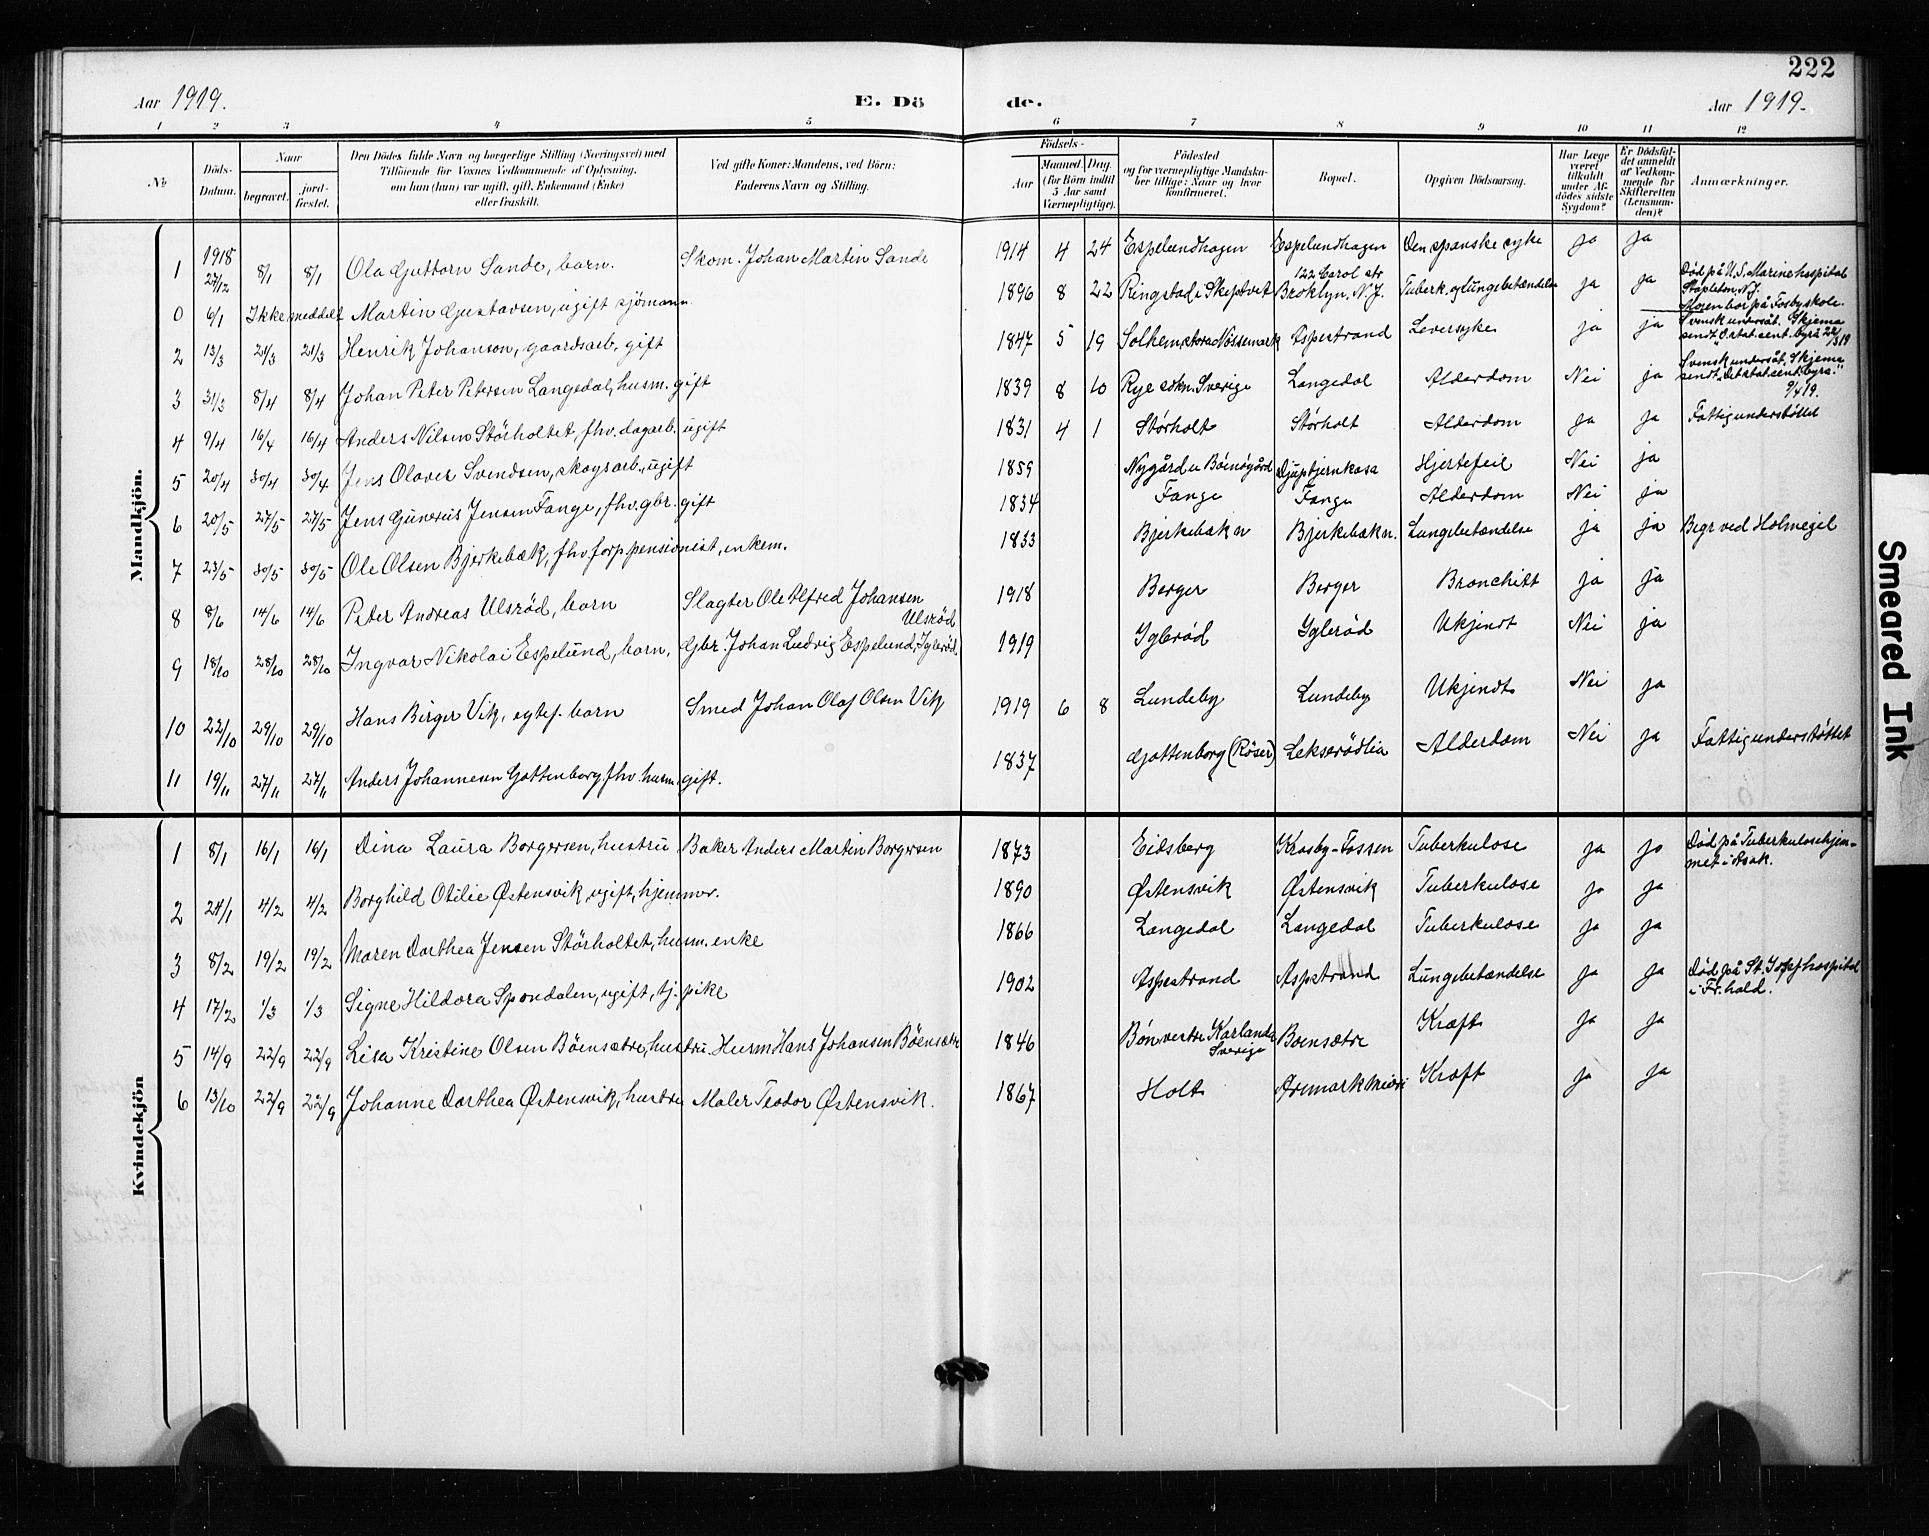 222
Aar 1919.
E. Dö
de.
Aar 1919.
1 2 3 4 5 6 7 8 9 10 11 12
№
Döds-Datum.
Naar
begravet.
jord-fæstet.
Den Dödes fulde Navn og borgerlige Stilling (Næringsvei) med
Tilföiende for Voxnes Vedkommende af Oplysning,
om han (hun) var ugift, gift, Enkemand (Enke)
eller fraskilt.
Ved gifte Koner: Mandens, ved Börn:
Faderens Navn og Stilling.
Födsels-
Aar
Maaned.
Dag.
(for Börn indtil
5 Aar samt
Værnepligtige).
Födested
og for værnepligtige Mandska-
ber tillige: Naar og hvor
konfirmeret.
Bopæl.
Opgiven Dödsaarsag.
Har Læge
været
tilkaldt
under Af-
dödes sidste
Sygdom?
Er Dödsfal-
det anmeldt
af Vedkom-
mende for
Skifteretten
(Lensman-
den)?
Anmærkninger.
Mandkjön.
1 1918 27/12 8/1 8/1 Ola Guttorn Sande, barn. Skom. Johan Martin Sande 1914 4 24 Espelundhagen Espelundhagen Den spanske syke ja ja
0 6/1 Ikke meddelt Martin Gustavsen, ugift sjömann 1896 8 22 Ringstad i Skiptvet 122 Carol str Broklyn, N.J. Tuberk. og lungebetændelse ja ja Död på U.S. Marinehospital Stapleton, N.J. Moren bor på Fosbyskole.
2 13/3 21/3 21/3 Henrik Johanson, gaardsarb. gift 1847 5 19 Nössemark Aspestrand Leversyke ja ja Svensk undersåt. Skjema sendt "D. stat. cent. byrå 22/3 19
3 31/3 8/4 8/4 Johan Peter Petersen Langedal, husm. gift 1839 8 10 Rye sokn. Sverige Langedal Alderdom Nei ja Svensk undersåt, Skjema sendt "Det stat. cent. byrå." 9/4 19.
4 9/4 16/4 16/4 Anders Nilsen Störholtet, fhv. dagarb. ugift 1831 4 1 Störholt Störholt Alderdom ja ja Fattigunderstöttet
5 20/4 30/4 30/4 Jens Olaves Svendsen, skogsarb., ugift 1859 Nygård u Böensgård Djuptjernkasa Hjertefeil Nei ja
6 20/5 27/5 27/5 Jens Gunerius Jensen Fange, fhv. gbr. gift 1834 Fange Fange Alderdom Nei ja
7 23/5 30/5 30/5 Ole Olsen Bjerkebæk, fhv forp. pensionist, enkem. 1833 Bjerkebækn Bjerkebækn. Lungebetændelse ja ja Begr ved Holmegil
8 8/6 14/6 14/6 Peter Andreas Ulsröd, barn Slagter Ole Alfred Johansen Ulsröd 1918 Berger Berger Bronchitt ja ja
9 18/10 28/10 28/10 Ingvar Nikolai Espelund, barn, Gbr. Johan Ludvig Espelund, Igleröd 1919 Igleröd Igleröd Ukjendt Nei ja
10 22/10 29/10 29/10 Hans Birger Vik, egtef. barn Smed Johan Olaf Olsen Vik 1919 6 8 Lundeby Lundeby Ukjendt Nei ja
11 19/11 27/11 27/11 Anders Johannesen Gottenborg, fhv. husm. gift. 1837 Gottenborg (Röser) Lekserödlia Alderdom Nei ja Fattigunderstöttet
Kvindekjön
1 8/1 16/1 16/1 Dina Laura Borgersen, hustru Baker Anders Martin Borgersen 1873 Eidsberg Krosby-Fossen Tuberkulose ja ja Död på Tuberkulosehjemmet i Rsak.
2 24/1 4/2 4/2 Borghild Otilie Østensvik, ugift, hjemmev. 1890 Østensvik Østensvik Tuberkulose ja ja
3 8/2 19/2 19/2 Maren Dorthea Jensen Störholtet, husm. enke 1866 Langedal Langedal Tuberkulose ja ja
4 17/2 1/3 1/3 Signe Hildora Spondalen, ugift, tj. pike 1902 Aspestrand Aspstrand Lungebetændelse ja ja Död på St. Josefhospital i Fr. hald.
5 14/9 22/9 22/9 Lisa Kristine Olsen Böensætre, hustru. Husm Hans Johansen Böensætre 1846 Bönvestre Karlanda Sverige Boensætre Kræft ja ja
6 13/10 22/9 22/9 Johanne Dorthea Østensvik, hustru Maler Teodor Østensvik. 1867 Holt Aremark Kræft ja ja
Smeared Ink